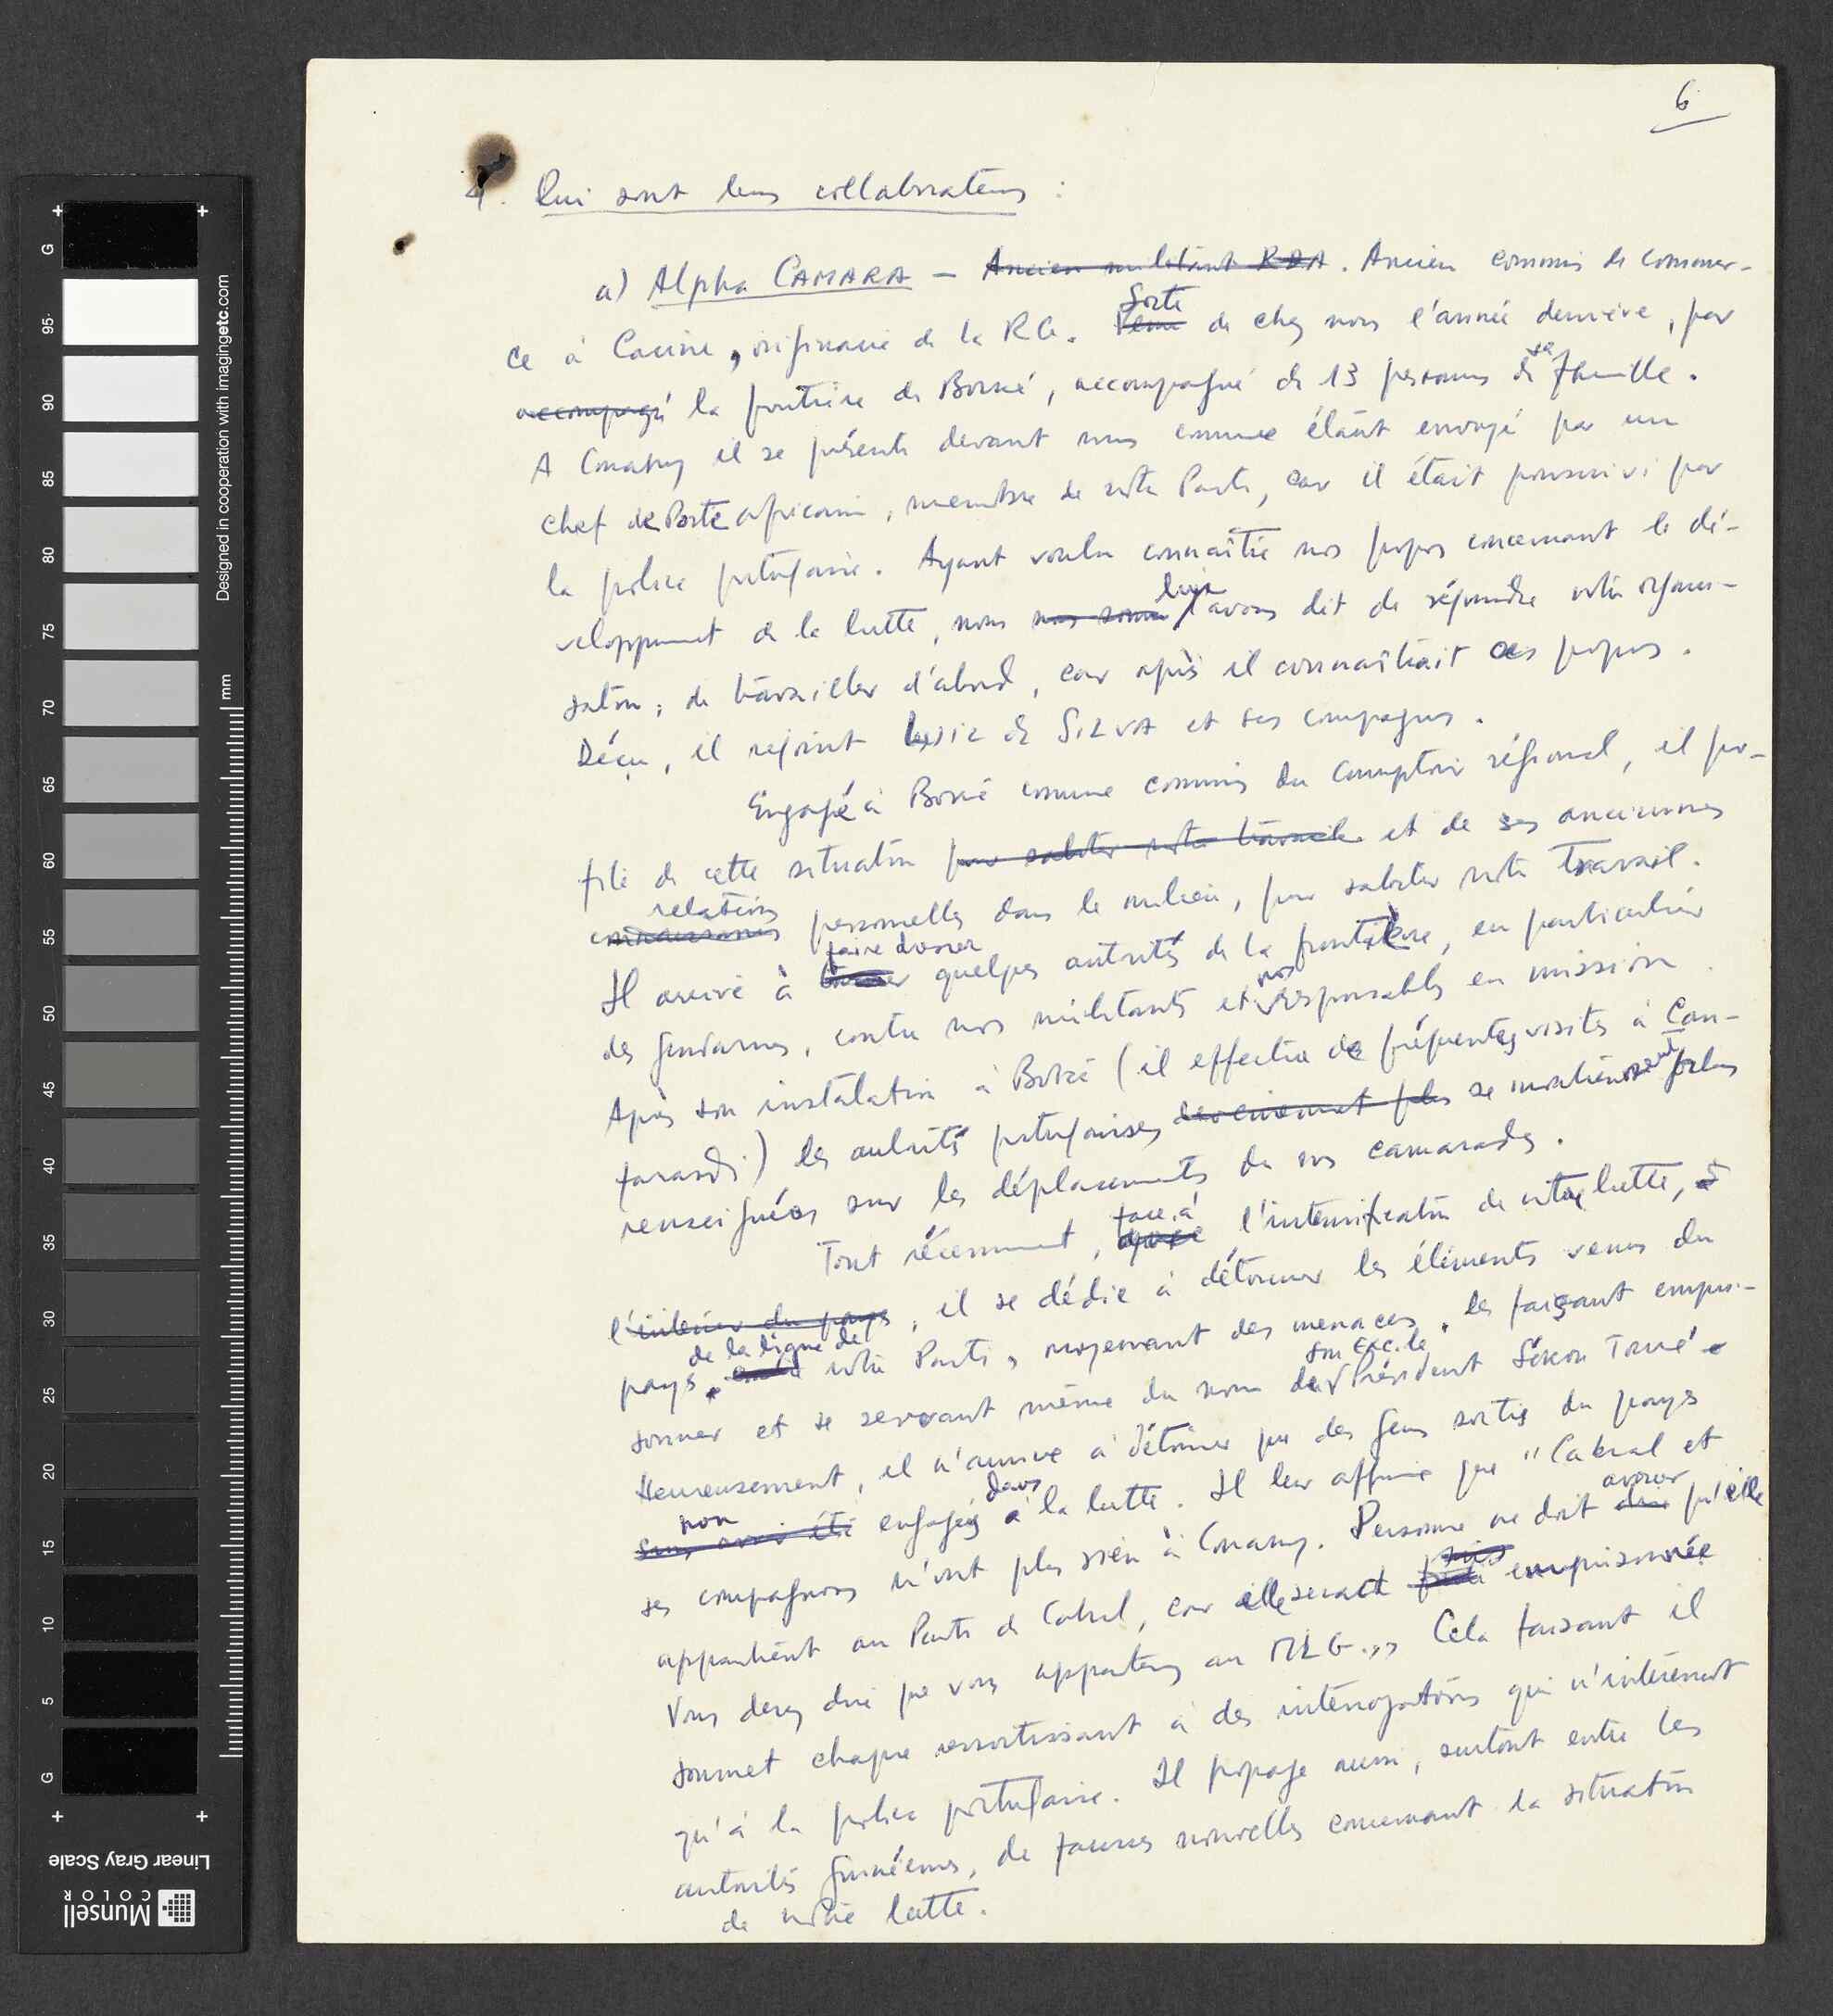 6
4. Qui sont leurs collaborateurs :
a) Alpha CAMARA – Ancien militant RDA. Ancien commis de commer-
ce à Cacine, originaire de la RG. Sorte de chez nous l'année dernière, par
accompagné la frontière de Boké, accompagné de 13 personnes de sa famille.
A Conakry il se présente devant nous comme étant envoyé par un
chef de Poste africain, membre de notre Parti, car il était poursuivi par
la police portugaise. Ayant voulu connaître nos propos concernant le dé-
veloppement de la lutte, nous nous somme lui avons dit de répondre notre organi-
sation, de travailler d'abord, car après il connaîtrait ces propos.
Déçu, il rejoint de SILVA et ses compagnons.
Engagé à Boké comme commis du Comptoir régional, il pro-
fite de cette situation pour saboter notre travail et de ses anciennes
relations
connaissances personnelles dans le milieu, pour saboter notre travail.
faire dresser
Il arrive à quelques autorités de la frontière, en particulier
des gendarmes, contre nos militants et nos responsables en mission.
Après son instalation à Boké (il effectue de fréquentes visites à Can-
farandi) les autorités portugaises deviennent plus se maintiennent plus
renseignées sur les déplacements de nos camarades.
Tout récemment, face à l'intensification de notre lutte, à
l'intérieur du pays, il se dédie à détourner les éléments venus du
de la ligne de
pays, notre Parti, moyennant des menaces, les faisant empri-
son Exc. le
sonner et se servant même du nom de Président Sékou Touré.
Heureusement, il n'arrive à détourner que des gens sortis du pays
non dans
sans avoir été engagés à la lutte. Il leur affirme que "Cabral et
ses compagnons n'ont plus rien à Conakry. Personne ne doit avouer qu'elle
appartient au Parti de Cabral, car elle serait emprisonnée
Vous devez dire que vous appartenez au MLG.,, Cela faisant il
soumet chaque ressortissant à des interrogatoires qui n'intéressent
qu'à la police portugaise. Il propage aussi, surtout entre les
autorités guinéennes, de fausses nouvelles concernant la situation
de notre lutte.
Designed in cooperation with imagingetc.com
mm
G 95 90 85 80 75 70 65 60 55 50 45 40 35 30 25 20 15 10 5 G
Linear Gray Scale
Munsell
COLOR